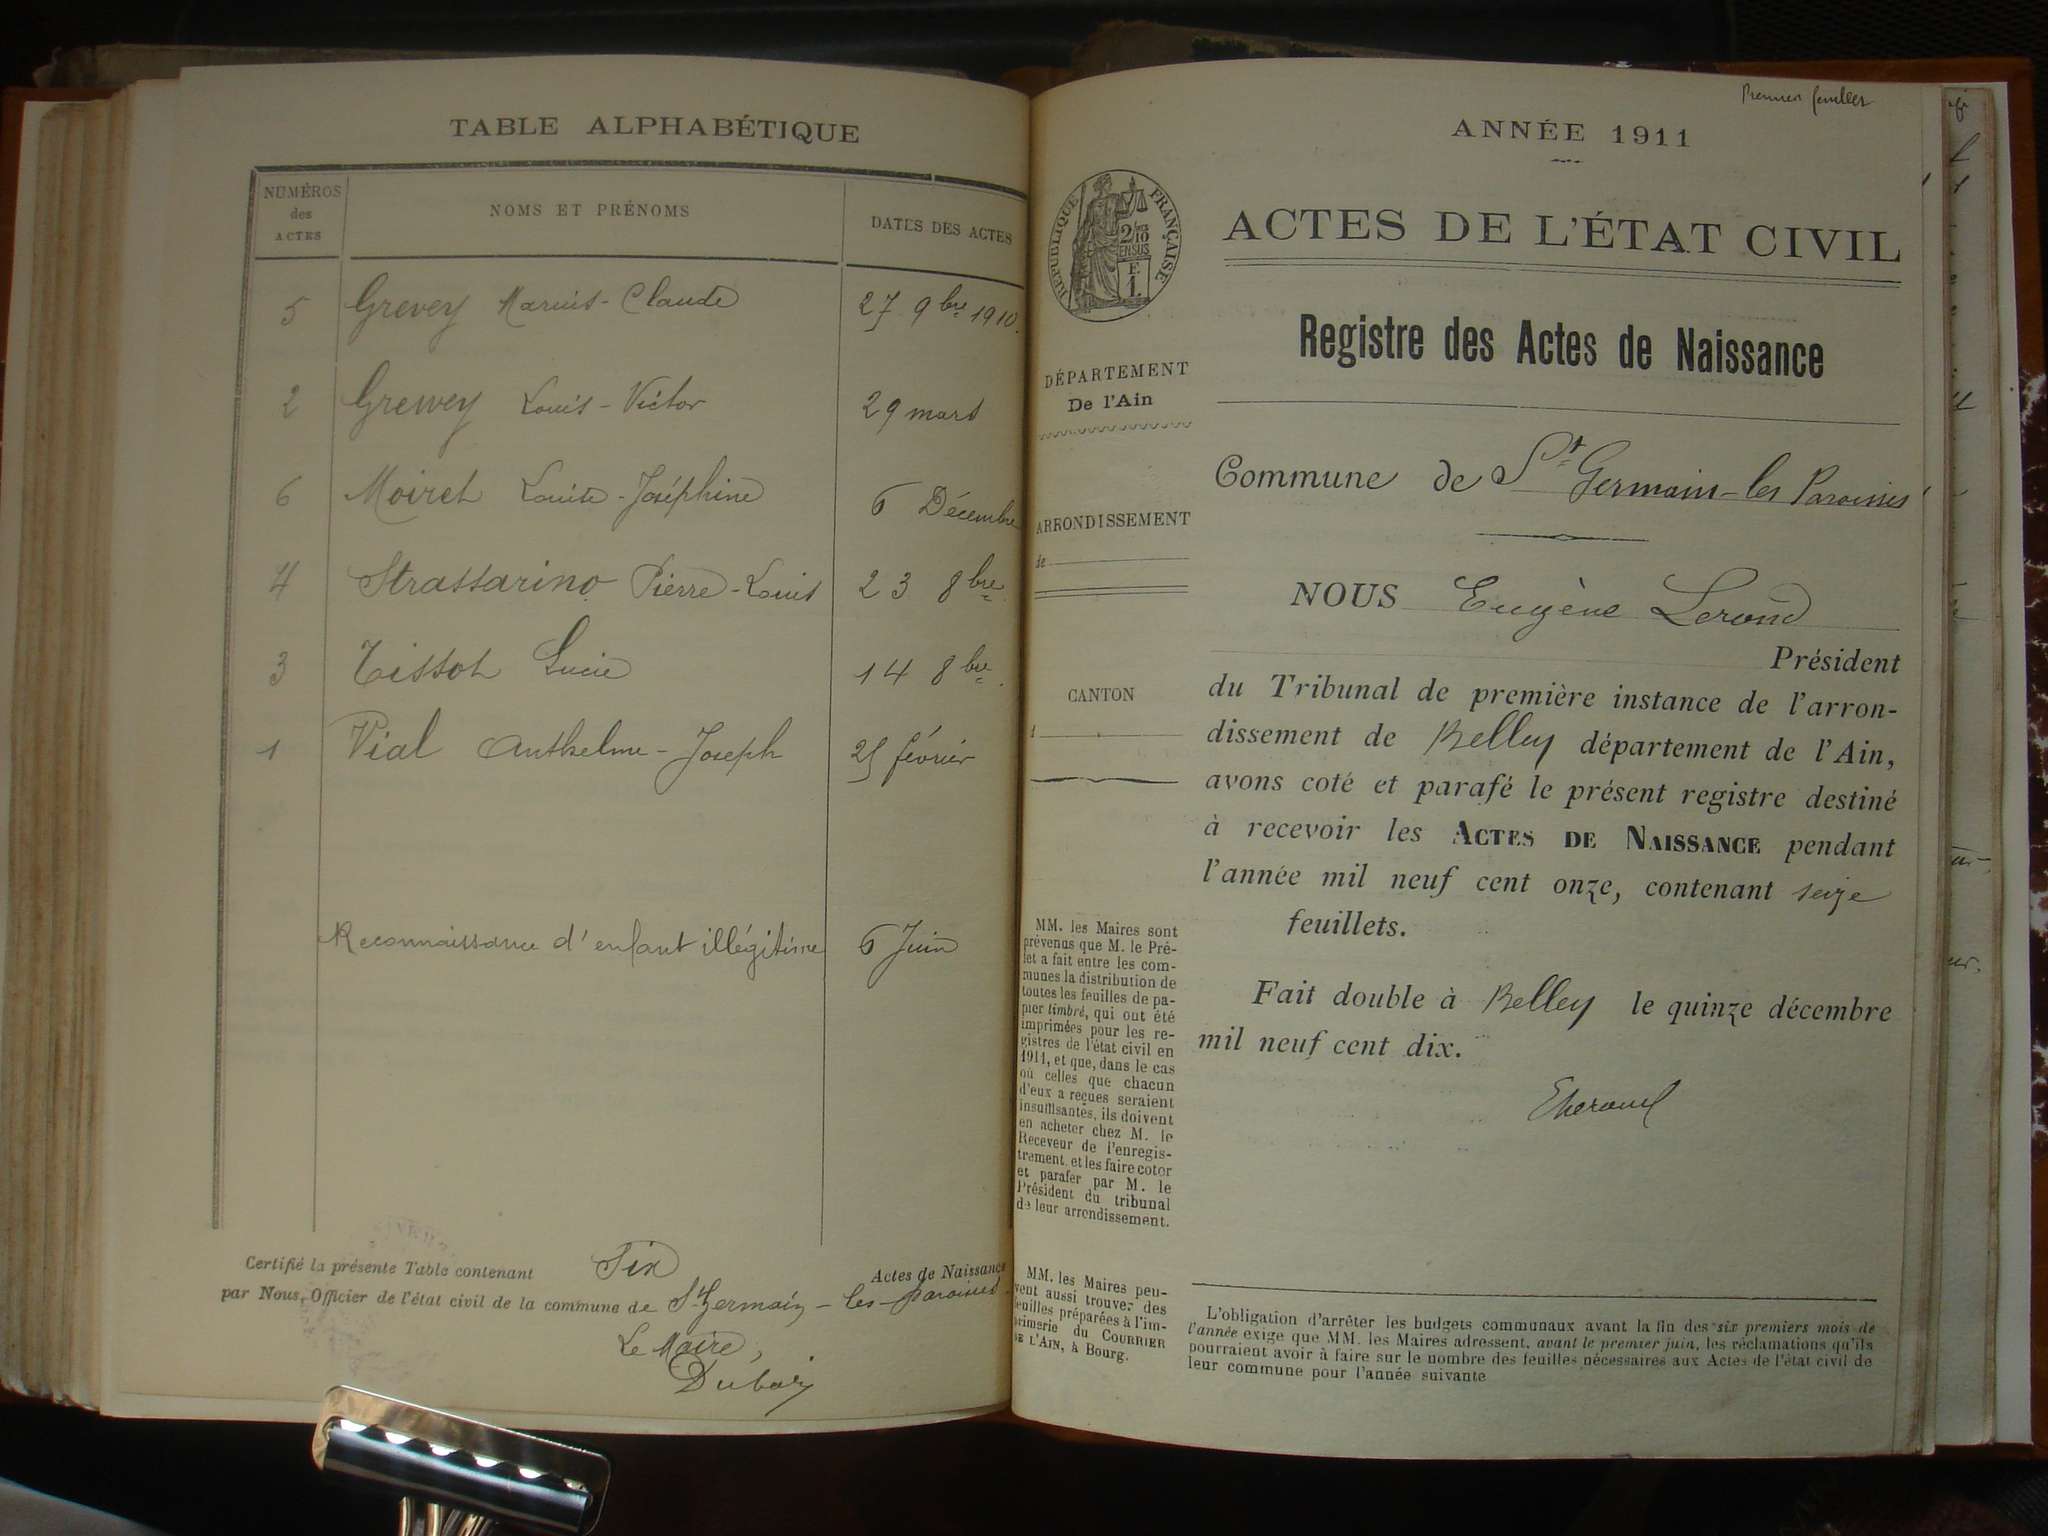 TABLE ALPHABÉTIQUE
NUMÉROS
des
ACTES
NOMS ET PRÉNOMS
DATES DES ACTES
5 Grevey Marius-Claude 27 9bre 1910.
2 Grewey Louis-Victor 29 mars
6 Moiret Louise-Joséphine 6 Décembre
4 Strassarino Pierre-Louis 23 8bre.
3 Tissot Lucie 14 8bre.
1 Vial Anthelme-Joseph 25 février
Reconnaissance d'enfant illégitime 6 Juin
Certifié la présente Table contenant Six Actes de Naissance
par Nous, Officier de l'état civil de la commune de St Germain-les-paroisses
Le Maire,
Premier feuillet
ANNÉE 1911
RÉPUBLIQUE FRANÇAISE
2/10
EN SUS
F.
1.
ACTES DE L'ÉTAT CIVIL
Registre des Actes de Naissance
DÉPARTEMENT
De l'Ain
ARRONDISSEMENT
de
CANTON
Commune de St Germain-les Paroisses
NOUS Eugène Lerond
Président
du Tribunal de première instance de l'arron-
dissement de Belley département de l'Ain,
avons coté et parafé le présent registre destiné
à recevoir les ACTES DE NAISSANCE pendant
l'année mil neuf cent onze, contenant seize
feuillets.
Fait double à Belley le quinze décembre
mil neuf cent dix.
MM. les Maires sont
prévenus que M. le Pré-
fet a fait entre les com-
munes la distribution de
toutes les feuilles de pa-
pier timbré, qui ont été
imprimées pour les re-
gistres de l'état civil en
1911, et que, dans le cas
où celles que chacun
d'eux a reçues seraient
insuffisantes, ils doivent
en acheter chez M. le
Receveur de l'enregis-
trement, et les faire coter
et parafer par M. le
Président du tribunal
de leur arrondissement.
MM. les Maires peu-
vent aussi trouver des
feuilles préparées à l'im-
primerie du COURRIER
DE L'AIN, à Bourg.
L'obligation d'arrêter les budgets communaux avant la fin des six premiers mois de
l'année exige que MM. les Maires adressent, avant le premier juin, les réclamations qu'ils
pourraient avoir à faire sur le nombre des feuilles nécessaires aux Actes de l'état civil de
leur commune pour l'année suivante